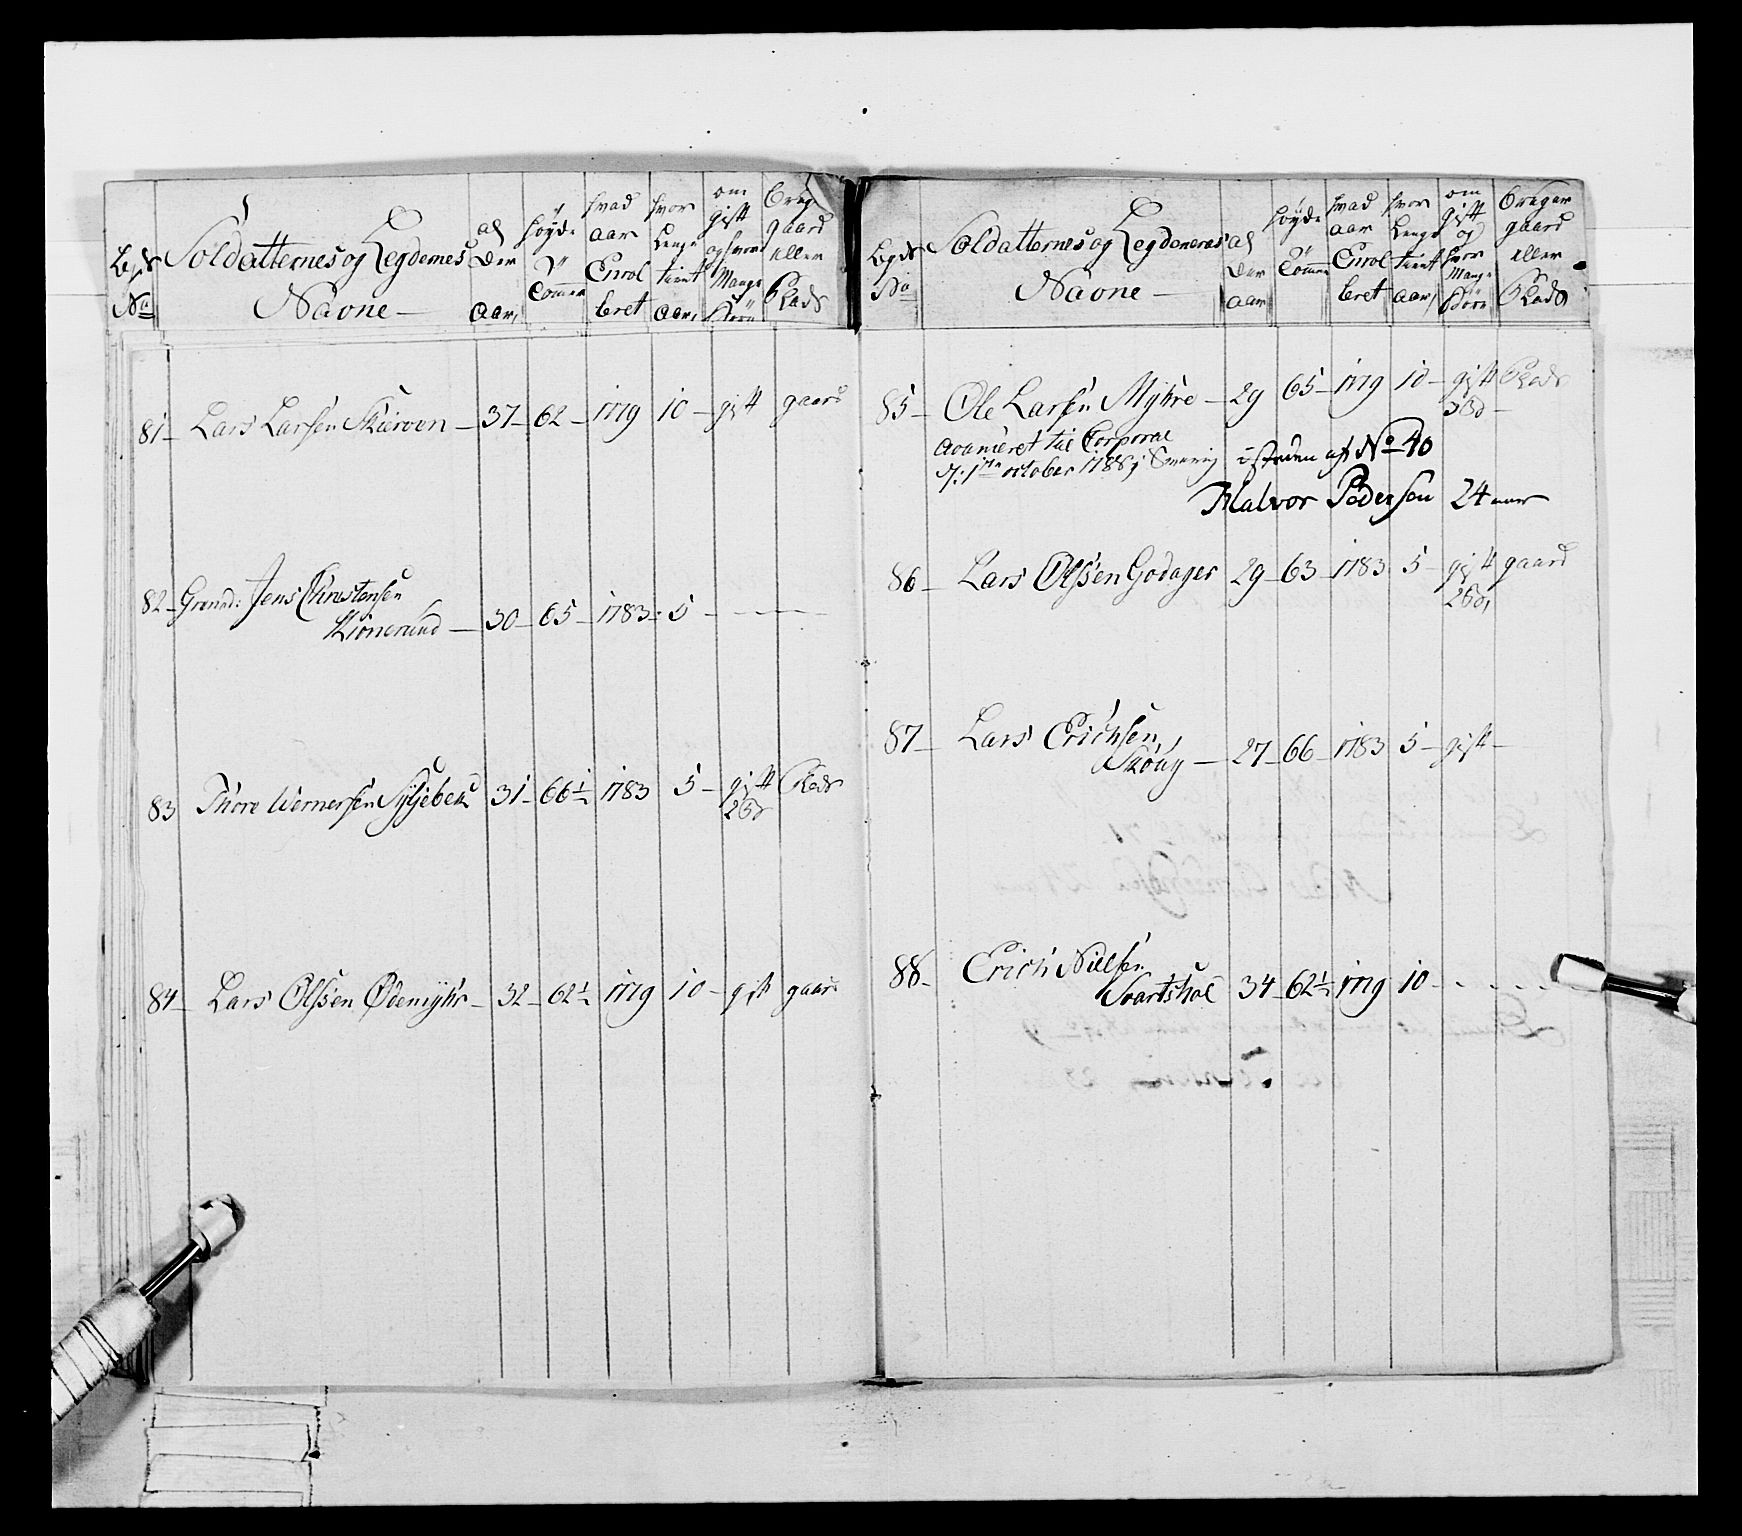 Legds No
Soldatternes og Legdernes Navne —
al der Aar,
høyde Tommer
hvad aar Enrol leret
hvor Lenge tient aar,
om gift og hvor Mange Børn
bruger gaard eller Plads
81 — Lars Larsen Skierven — 37 — 62 — 1779 10 — gift gaard
82 — Grenad: Jens Christensen
Kionerund — 30 — 65 — 1783 - 5 - — — —
83 Thore Wernersen Syljebek 31 — 66½ 1783 5 — gift Plads
2 B
84 — Lars Olssen Ødemyhr — 32 — 62½ 1779 10 — gift gaard
Legds No
Soldatternes og Legdenernes Navne —
al der aar
høyde Tommer
hvad aar Enrol leret
hvor Lenge tient aar,
om gift og hvor Mange Børn
bruger gaard eller Plads
85 — Ole Larsen Myhre — 29 65 — 1779 10 — gift Plads
3 B —
avanceret til Corporal
d: 1te october 1788 i Sverrig
i steden af No 40
Halvor Pedersen 24 aar
86 — Lars Olssen Godager 29 — 63 — 1783 5 — gift gaard
2 B,
87 — Lars Erichsen
Skoug — 27 — 66 — 1783 5 — gift —
88 — Erich Nielsen
Svartshol 34 — 62½ 1779 10 — - - - -